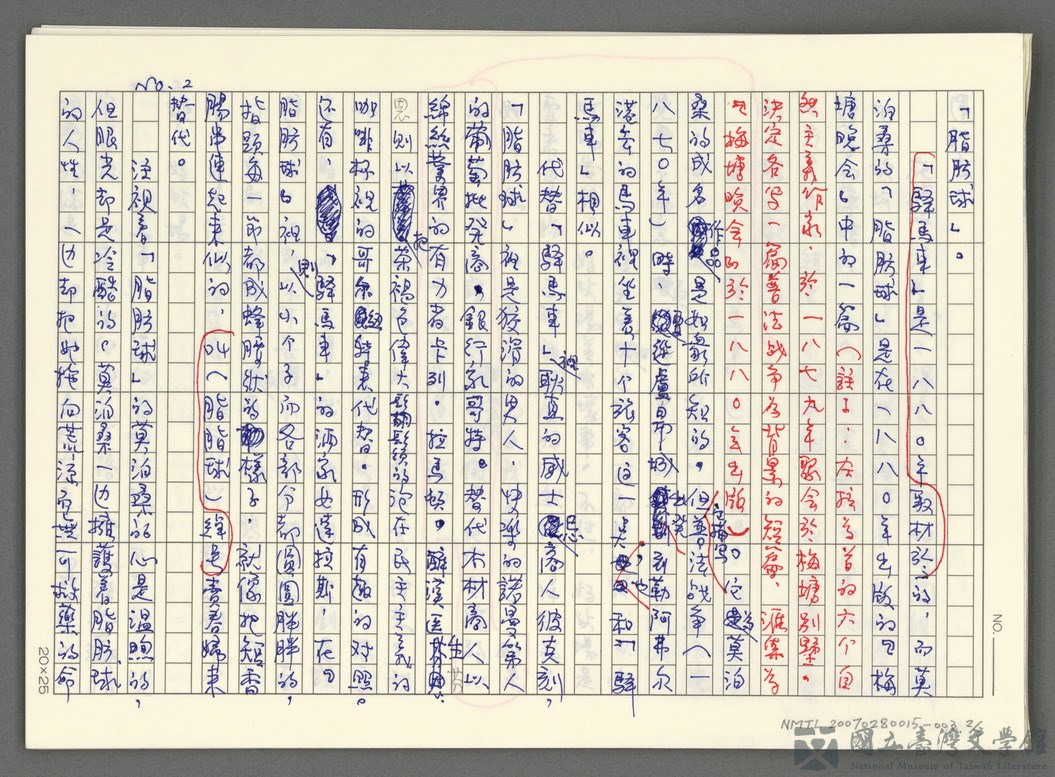 No. 2
「脂肪球」。
「驛馬車」是一八八〇年取材於的，而莫
泊桑的「脂肪球」是在一八八〇年出版的『梅
塘晚会』中的一篇（註：左拉為首的六个自
然主義作家，於一八七九年聚会於梅塘別墅。
決定各写一篇普法战争為背景的短篇，滙集為
『梅塘晚会』於一八八〇年出版）。它為莫泊
桑的成名作品是如衆所知的。但普法战争（一
八七〇年）時，從盧昂城出発到勒阿弗尔
港去的馬車裡坐着十个旅客這一点，也和「驛
馬車」相似。
代替「驛馬車」裡耿直的威士忌商人彼真刻，
「脂肪球」裡是狡滑的男人，快樂的諾曼第人
的葡萄批発商。銀行家哥特。替代木材商人以
綿絲業界的有力者卡列・拉馬頓。醉漢医生
則以把茶褐色偉大鬍鬚的泡在民主主義的
咖啡杯裡的哥尔騖表代替。形成有趣的对照。
还有，「驛馬車」的酒家女達拉斯，在『
脂肪球』裡，則以小个子而各部分都圓圓胖胖的，
指頭每一節都成蜂腰狀的樣子，就像把短香
腸串連起来似的，叫（脂肪球）綽号賣春婦来
替代。
注視着「脂肪球」的莫泊桑的心是温煦的，
但眼光却是冷酷的。莫泊桑一边擁護着脂肪球
的人性，一边却把她拖向荒涼而無可救藥的命
20×25
NO.
NMTL 20070280015-003 2/
國立臺灣文學館
National Museum of Taiwan Literature